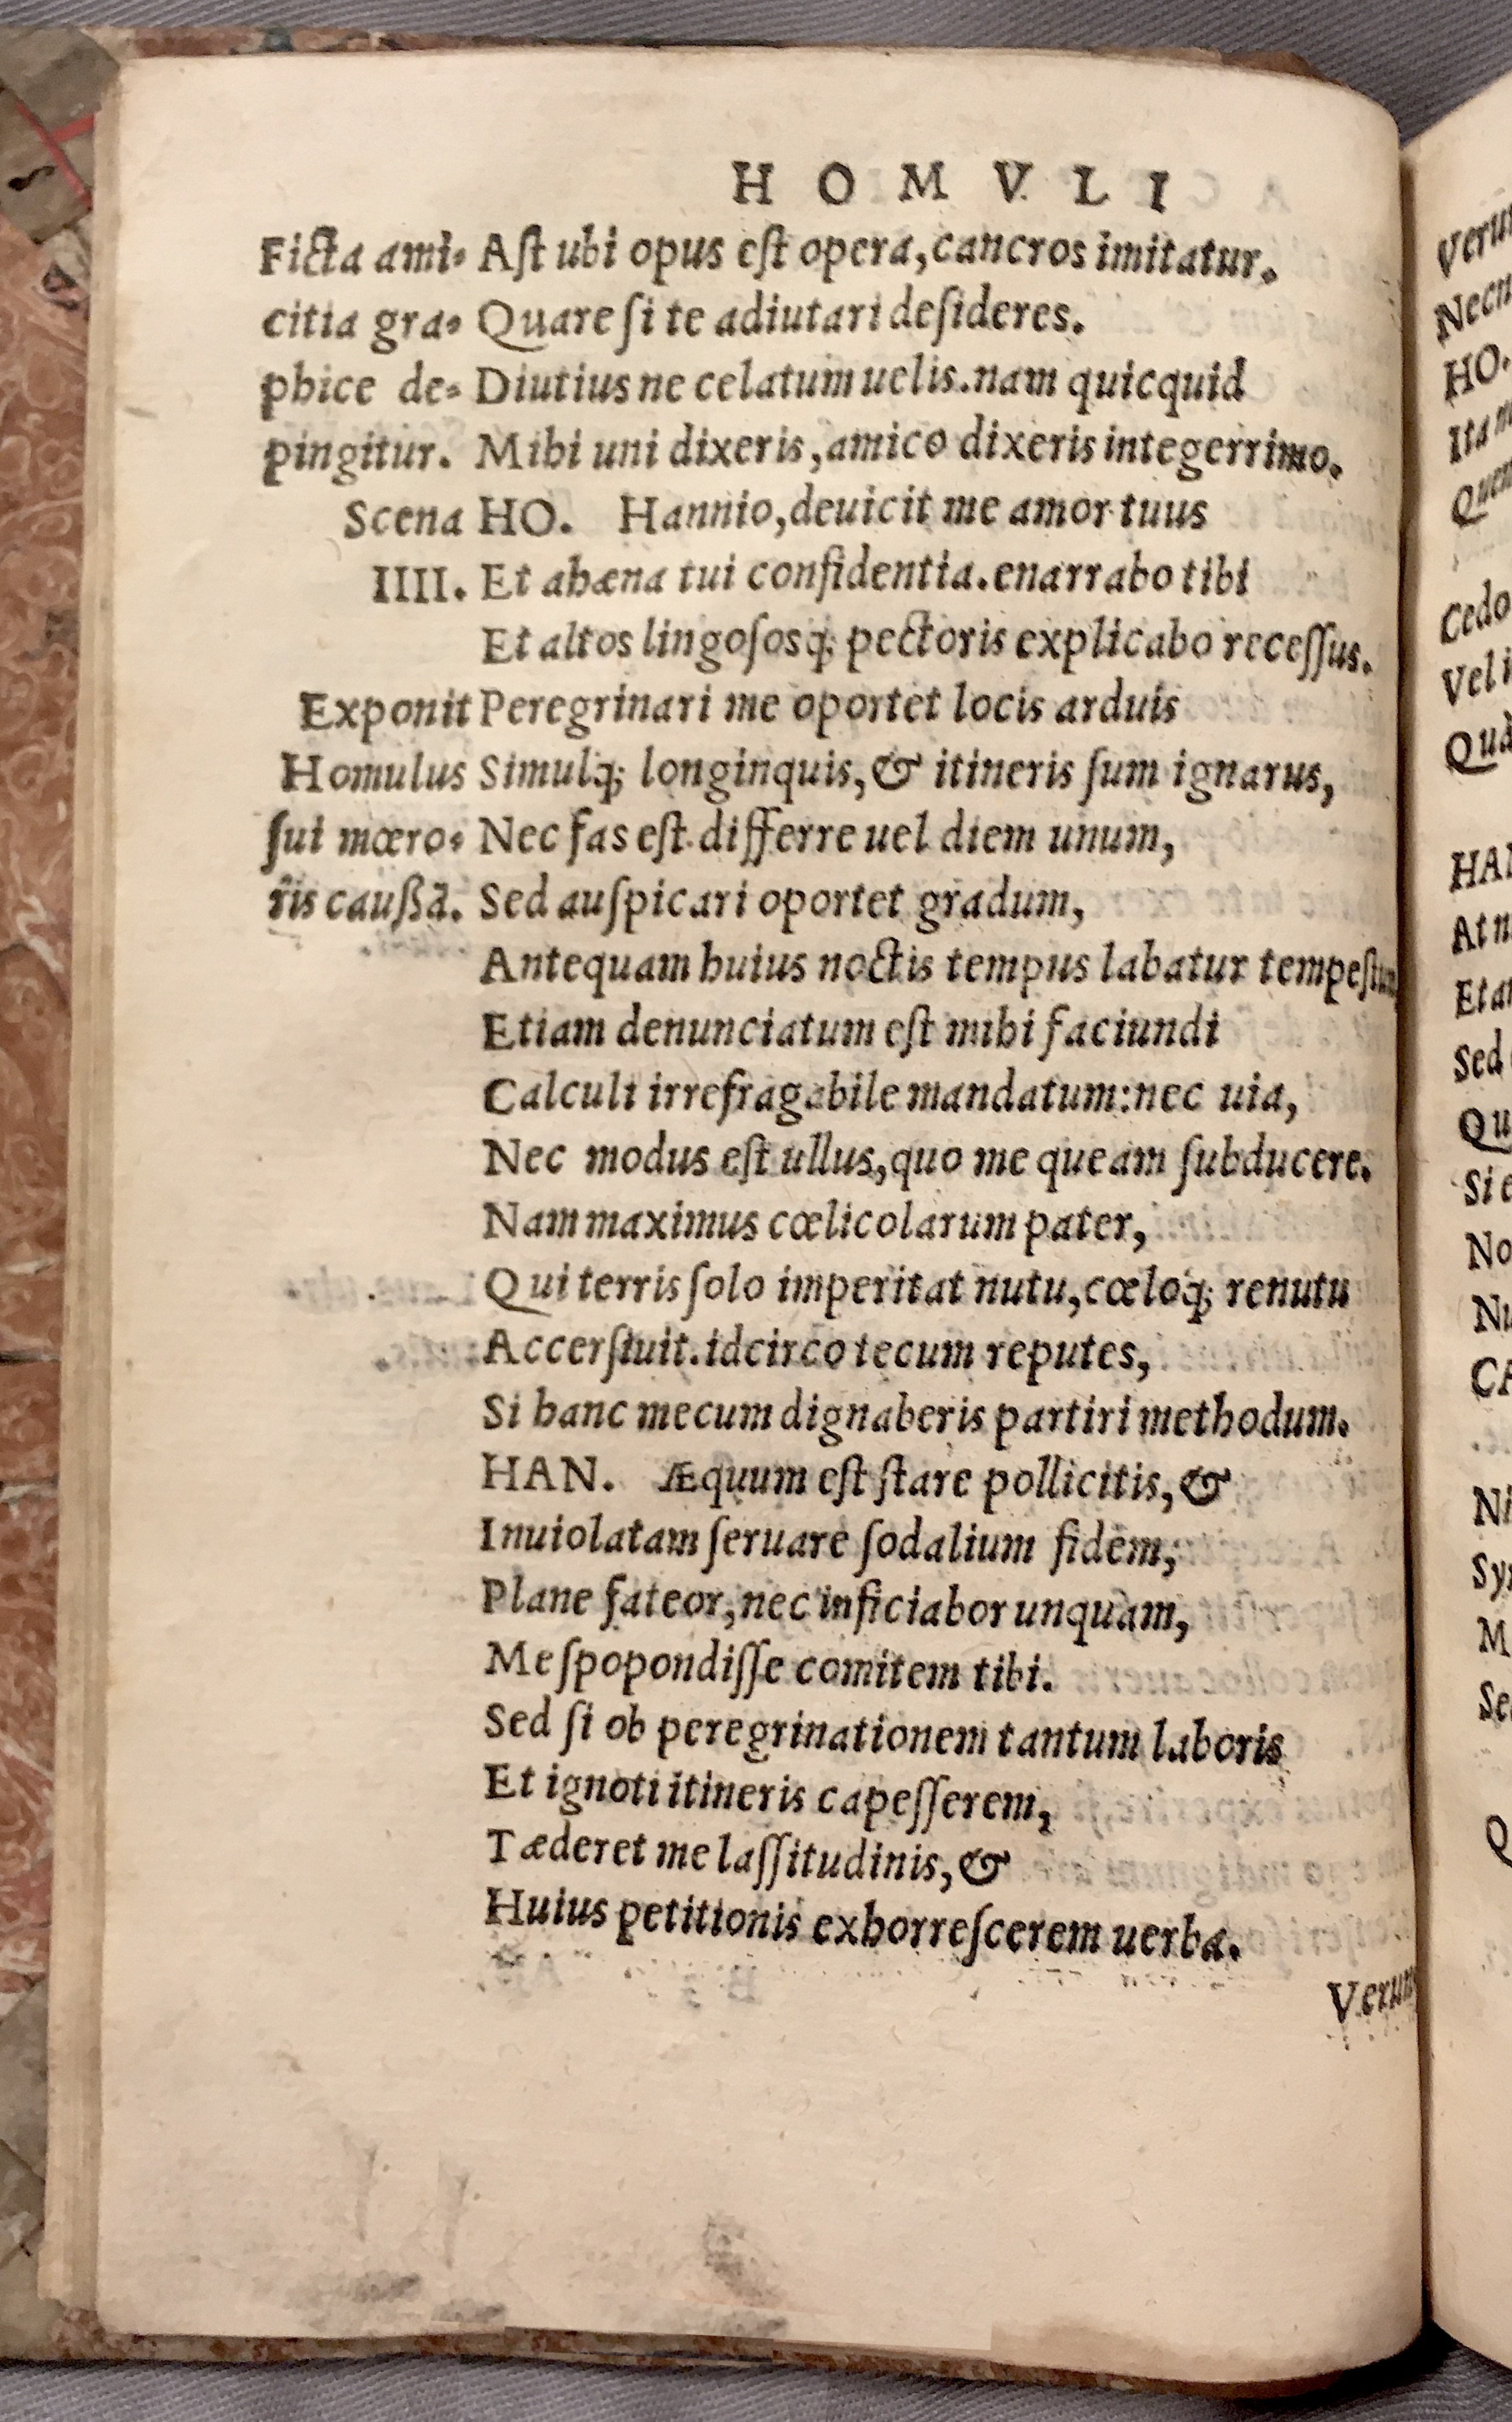 H O M V L I
Ficta ami- Aſt ubi opus eſt opera, cancros imitatur.
citia gra- Quare ſi te adiutari deſideres.
phice de- Diutius ne celatum uelis. nam quicquid
pingitur. Mihi uni dixeris, amico dixeris integerrimo.
Scena HO. Hannio, deuicit me amor tuus
IIII. Et ahæna tui confidentia. enarrabo tibi
Et altos lingoſosq; pectoris explicabo receſſus.
Exponit Peregrinari me oportet locis arduis
Homulus Simulq; longinquis, & itineris ſum ignarus,
ſui mœro- Nec fas eſt differre uel diem unum,
ris cauſſã. Sed auſpicari oportet gradum,
Antequam huius noctis tempus labatur
Etiam denunciatum eſt mihi faciundi
Calculi irrefragabile mandatum: nec uia,
Nec modus eſt ullus, quo me queam ſubducere.
Nam maximus cœlicolarum pater,
Qui terris ſolo imperitat nutu, cœloq; renutu
Accerſiuit. idcirco tecum reputes,
Si hanc mecum dignaberis partiri methodum.
HAN. Æquum eſt ſtare pollicitis, &
Inuiolatam ſeruare ſodalium fidem,
Plane fateor, nec inficiabor unquam,
Me ſpopondiſſe comitem tibi.
Sed ſi ob peregrinationem tantum laboris
Et ignoti itineris capeſſerem,
Tæderet me laſſitudinis, &
Huius petitionis exhorreſcerem uerba.
Verum
HO.
Cedo
Sed